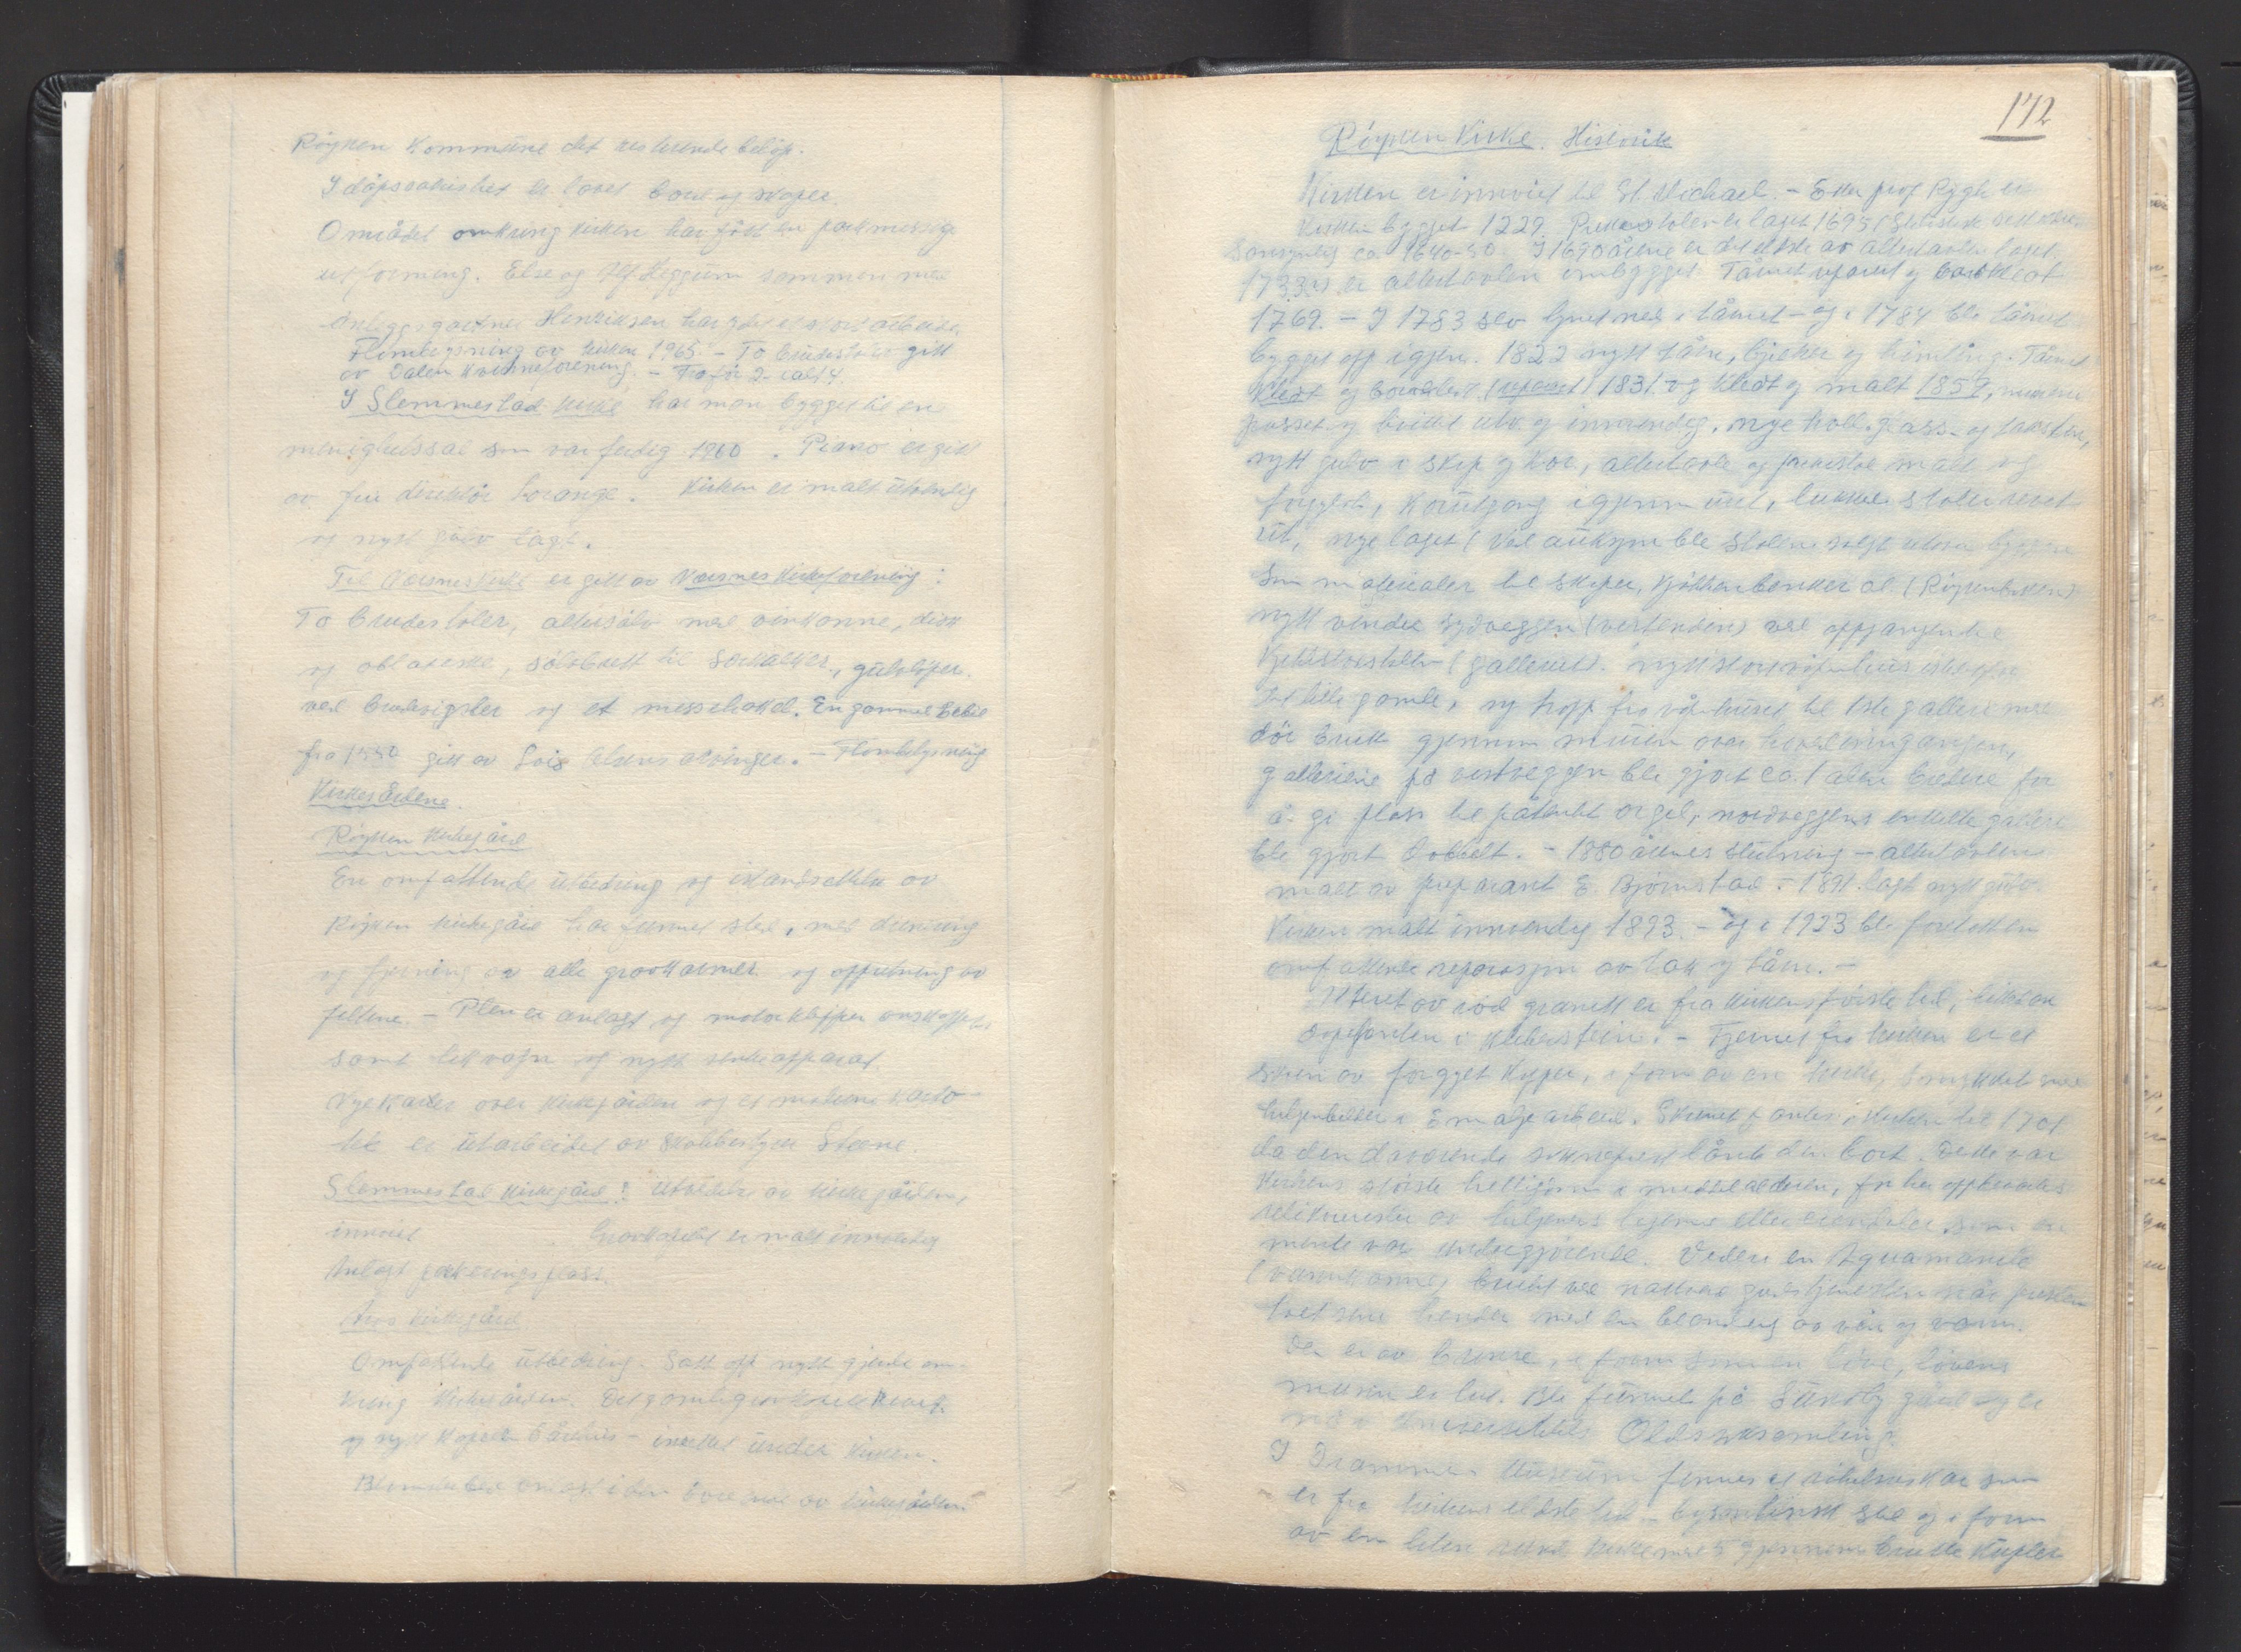 Røyken Kommune det resterende beløp.
I dåpssakristiet er laget bord og skaper.
Området omkring kirken har fått en parkmessig
utforming. Else og Heggum sammen med
anleggsgartner Henriksen har gjort et stort arbeide.
Flombelysning av kirken 1965. - To brudestoler gitt
av Dalen Kvinneforening. - Fra før 2 - ialt 4.
I Slemmestad kirke har man bygget til en
menighetssal som var ferdig 1960. Piano er gitt
av fru direktør Lorange. Kirken er malt utvendig
og nytt gulv lagt.
Til Nærsnes Kirke er gitt av Nærsnes Kirkeforening:
To brudestoler, altersølv med vinkanne, disk
og oblateske, sølvbrett til særkalker, gulvløper
ved brudevigsler og et messehakel. En gammel Bibel
fra gitt av Olsens arvinger. - Flombelysning
Kirkegårdene.
Røyken kirkegård
En omfattende utbedring og istandsettelse av
Røyken kirkegård har funnet sted, med drenering
og fjerning av alle gravkarmer og oppretning av
feltene. - Plen er anlagt og motorklipper anskaffet,
samt likvogn og nytt senkeapparat.
Nye karter over kirkegården og et moderne karto-
tek er utarbeidet av skolebestyrer Steene.
Slemmestad kirkegård: Utvidelse av kirkegården,
innviet . Gravkapellet er malt innvendig
Anlagt parkeringsplass.
Åros kirkegård
Omfattende utbedring. Satt opp nytt gjerde om-
kring kirkegården. Det gamle revet
og nytt kapell bårehus - innredet under kirken.
Blomsterbed anlagt i den øvre del av kirkegården
172
Røyken Kirke. Historik
Kirken er innviet til St. Michael. - Etter prof. Rygh er
kirken bygget 1229. Prekestolen er laget 1695
Sansynlig ca 1640-50. I 1690 årene er det eldste av altertavlen laget.
1733 er altertavlen ombygget. Tårnet reparert og bordkledt
1769. - I 1783 slo lynet ned i tårnet - og i 1784 ble tårnet
bygget opp igjen. 1822 nytt tårn, bjelker og himling. Tårnet
kledt og bordkledt (reparert) 1831. og kledt og malt 1859, murene
pusset og hvittet utv. og innvendig, nye holl. glass- og taksten,
nytt gulv i skip og kor, altertavle og prekestol malt og
forgylt, korutgang igjennmuret, lukkede stoler revet
ut, nye laget (Ved auksjon ble stolene solgt utover bygden
som materialer til skaper, kjøkkenbenker al. (Røykenboken)
nytt vindu sydveggen (vestenden) ved oppgangen til
(galleriet). nytt stort våpenhus istedenfor
det lille gamle, ny trapp fra våpenhuset til 1ste galleri med
dør brutt gjennom muren over hovedinngangen,
galleriene på vestveggen ble gjort ca. 1 alen bredere for
å gi plass til påtenkt orgel, nordveggens enkelte galleri
ble gjort dobbelt. - 1880 årenes slutning - altertavlen
malt av preparant E. Bjørnstad. - 1891. lagt nytt gulv.
Kirken malt innvendig 1893. - og i 1923 ble foretatt en
omfattende reparasjon av tak og tårn. -
Alteret av rød granitt er fra kirkens første tid, likeså
døpefonten i kleberstein. - Fjernet fra kirken er et
skrin av forgylt kopper, i form av en kirke, smykket med
helgenbilder i Emaljearbeid. Skrinet fantes i kirken til 1701
da den daværende sokneprest lånte den bort. Dette var
kirkens største helligdom i middelalderen, for her oppbevartes
relikvierester av helgeners legeme eller eiendeler som en
mente var undergjørende. Videre en Aquamanile
(vannkanne) brukt ved nattverdgudstjenesten når presten
toet sine hender med en blanding av vin og vann.
Den er av bronse, i form som en løve, løvens
munn er tut. Ble funnet på Sundby gård og er
nå i Universitetets Oldsaksamling.
I Drammens Museum finnes et røkelseskar som
er fra kirkens eldste tid - bysantinsk stil og i form
av en liten rund kirke med 5 gjennembrudte kupler